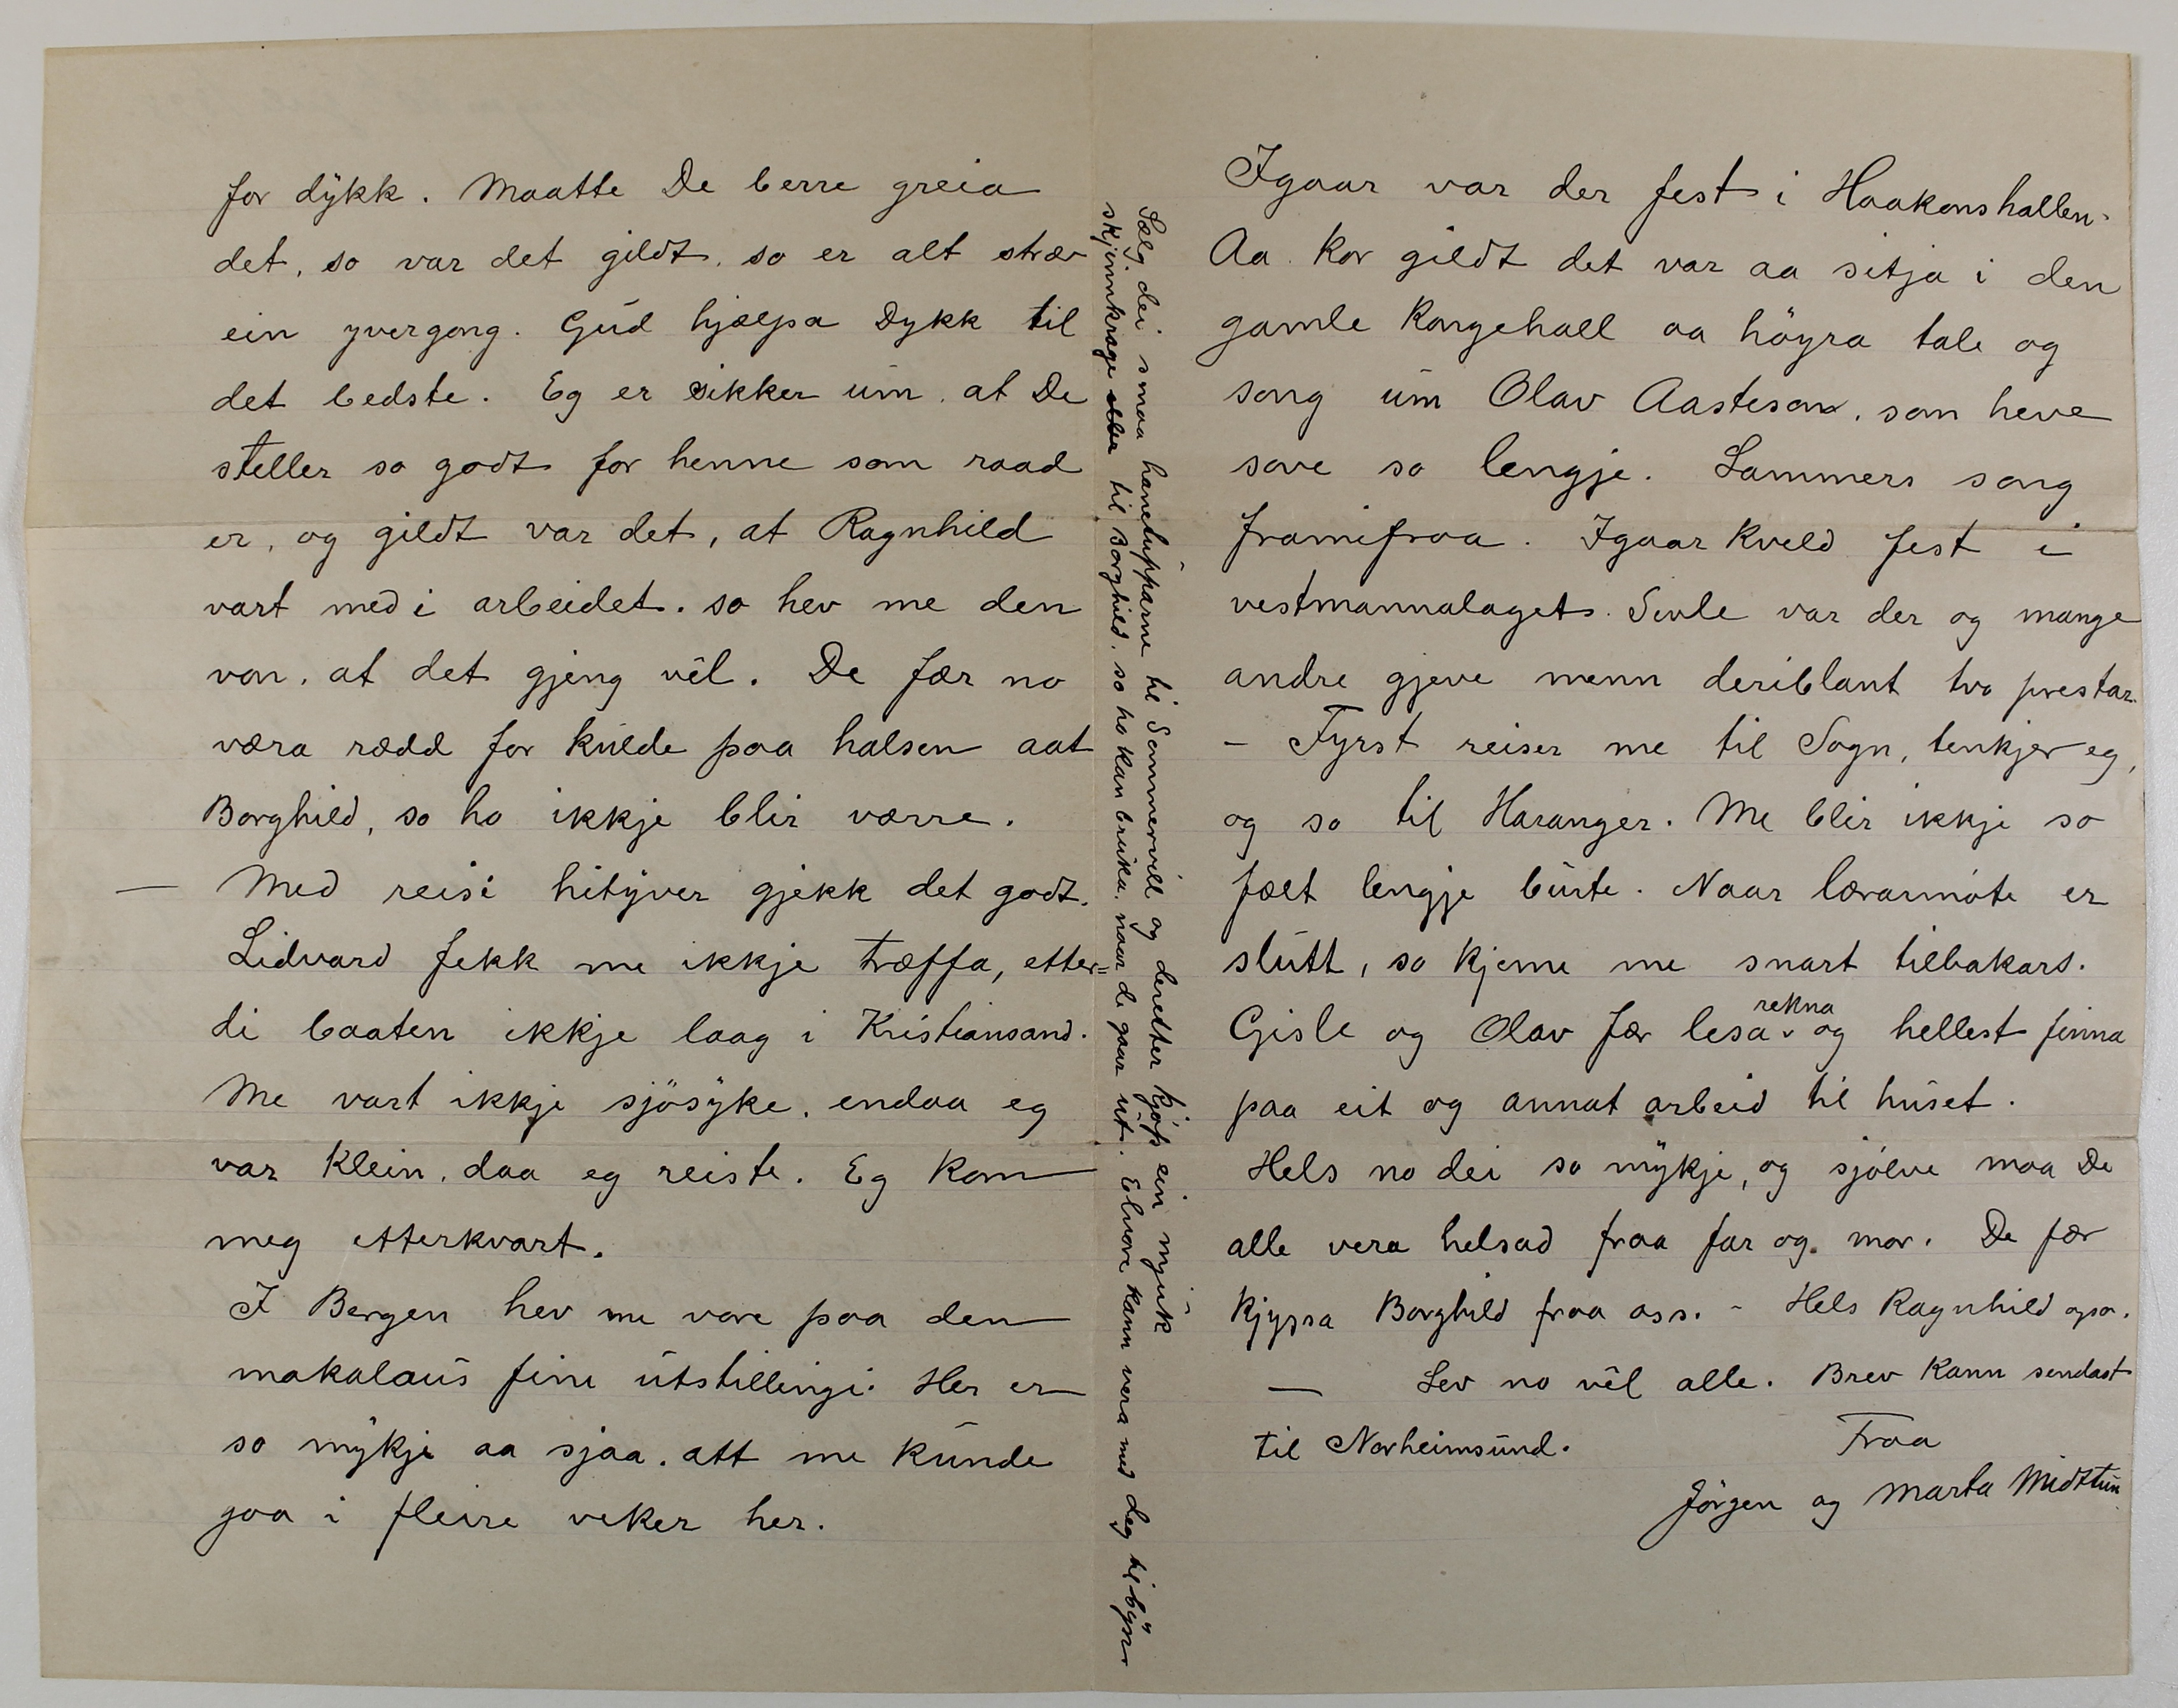 for dykk. Maatte De berre greia
det, so var det gildt, so er alt stræv
ein yvergang. Gud hjælpa Dykk til
det bedste. Eg er sikker um, at De
steller so godt for henne som raad
er, og gildt var det, at Ragnhild
vart med i arbeidet. so hev me den
von, at det gjeng vel. De fær no
væra rædd for kulde paa halsen aat
Borghild, so ho ikkje blir værre.
— Med reisi hityver gjekk det godt.
Lidvard fekk me ikkje træffa, etter=
di baaten ikkje laag i Kristiansand.
Me vart ikkje sjösyke, endaa eg
var klein, daa eg reiste. Eg kom
meg etterkvart.
I Bergen hev me vore paa den
makalaus fine utstillingi. Her er
so mykje aa sjaa, att me kunde
gaa i fleire veker her.
Sælg dei smaa hanetupparne til Sommervill og deretter kjøp ein mjuk
skjinnkrage til Borghild, so ho kan bruka, naar de gaar ut. Elvore kann vera med deg til byen
Igaar var der fest i Haakonshallen.
Aa kor gildt det var aa sitja i den
gamle Kongehall aa höyra tale og
song um Olav Aasteson, som heve
sove so lengje. Lammers song
framifraa. Igaar kveld fest i
vestmannalaget. Sivle var der og mange
andre gjeve menn deriblant tvo prestar.
– Fyrst reiser me til Sogn, tenkjer eg,
og so til Haranger. Me blir ikkje so
fælt lengje burte. Naar lærarmöte er
slutt, so kjeme me snart tilbakars.
Gisle og Olav fær lesa rekna og hellest finna
paa eit og annat arbeid til huset.
Hels no dei so mykje, og sjölve maa De
alle vera helsad fraa far og mor. De fær
kjyssa Borghild fraa oss. – Hels Ragnhild ogso.
— Lev no vel alle. Brev kann sendast
til Norheimsund. Fraa
Jörgen og Marta Midttun